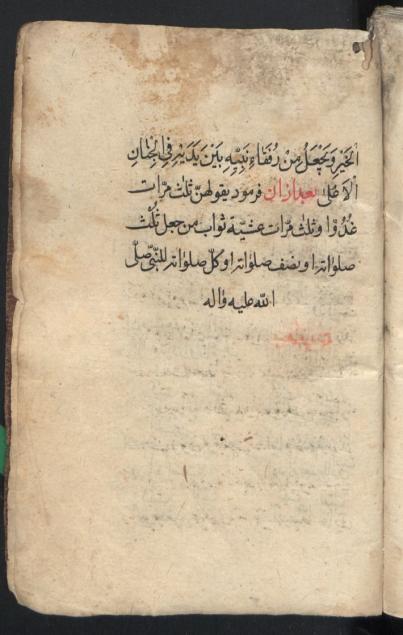 الخَیْرِ وَیَجْعَلُ مِنْ رُفَقَاءِ نَبِیِّهِ بَیْنَ یَدَیْهِ فِی الْجِنَانِ
الْاَعْلٰی بعد ازان فرمود یقولهنّ ثلٰث مرّات
غُدُوًّا و ثلٰث مرّات عشیّة ثواب من جعل ثُلُث
صلواته او نصف صلواته او کلّ صلواته للنّبیّ صلّی
اللّه علیه واله